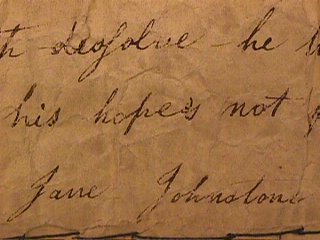 dissolve he
his hopes not
Jane Johnstone